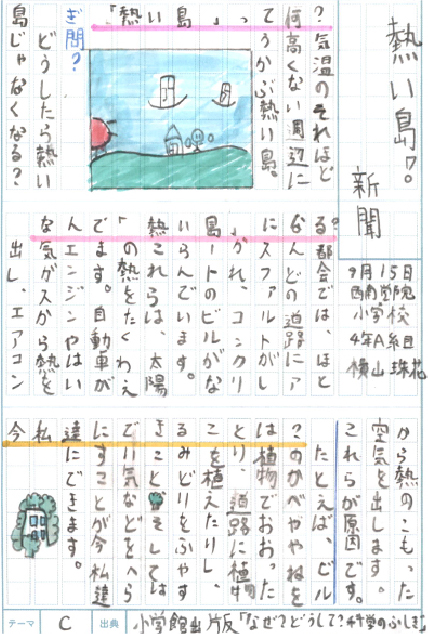 熱い島?。
新聞
9月15日
西南学院
小学校
4年A組
横山珠花
「熱い島」って何?
気温のそれほど
高くない周辺に
うかぶ熱い島。
ぎ問?
どうしたら熱い
島じゃなくなる?
なんで「熱い島」になる?
都会では、ほと
んどの道路にア
スファルトがし
かれ、コンクリ
ートのビルがな
らんでいます。
これらは、太陽
の熱をたくわえ
ます。自動車が
エンジンやはい
気ガスから熱を
出し、エアコン
から熱のこもった
空気を出します。
これらが原因です。
今私達にできることは?
たとえば、ビル
のかべややねを
植物でおおった
り、道路に植物
を植えたりし、
みどりをふやす
こと そしては
い気などをへら
すことが今私達
にできます。
テーマ C 出典 小学館出版「なぜ?どうして?科学のふしぎ」